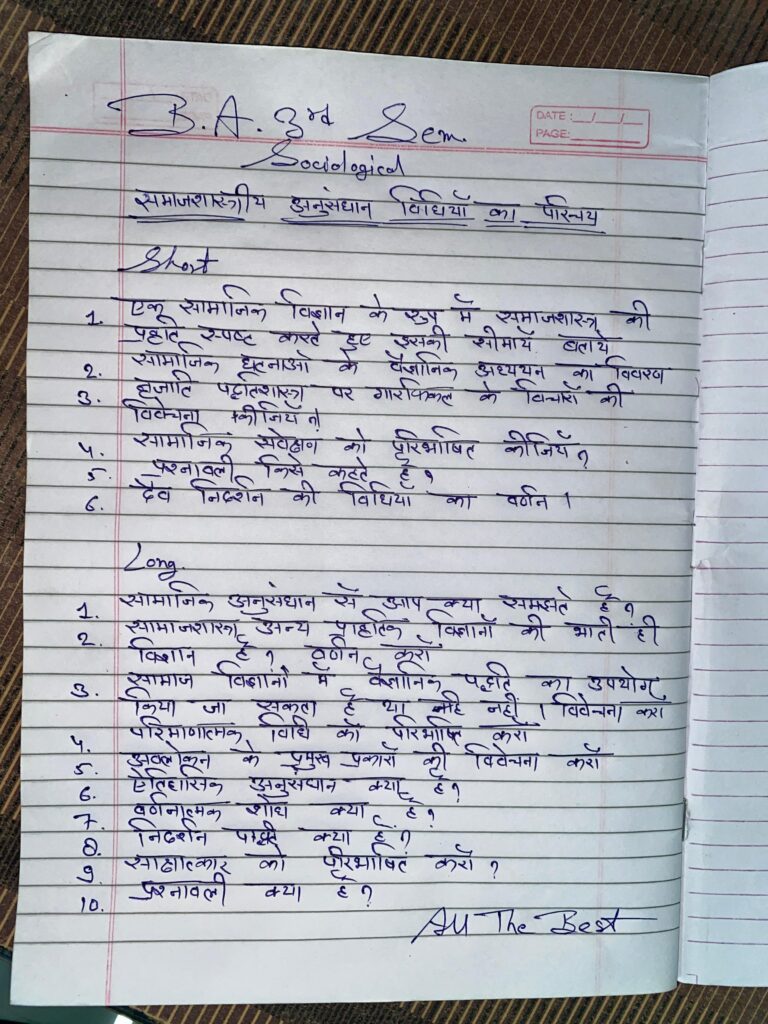 B. A. 3rd Sem.
DATE: __/__/__
PAGE:
Sociological
समाजशास्त्रीय अनुसंधान विधियाँ का परिचय
Short
1. एक सामाजिक विज्ञान के रूप में समाजशास्त्र की
प्रकृति स्पष्ट करते हुए इसकी सीमायें बतायें
2. सामाजिक घटनाओं के वैज्ञानिक अध्ययन का विवरण
3. प्रजाति पद्धतिशास्त्र पर गारफिंकल के विचारों की
विवेचना कीजियें
4. सामाजिक सर्वेक्षण को परिभाषित कीजियें ?
5. प्रश्नावली किसे कहते हैं ?
6. दैव निदर्शन की विधियों का वर्णन ।
Long.
1. सामाजिक अनुसंधान से आप क्या समझते हैं ?
2. सामाजशास्त्र अन्य प्राकृतिक विज्ञानों की भाती ही
विज्ञान है ? वर्णन करों
3. सामाज विज्ञानों में वैज्ञानिक पद्धति का उपयोग
किया जा सकता है या नहीं । विवेचना करों
4. परिमाणात्मक विधि को परिभाषित करों
5. अवलोकन के प्रमुख प्रकारों की विवेचना करों
6. ऐतिहासिक अनुसंधान क्या है ?
7. वर्णनात्मक शोध क्या है ?
8. निदर्शन पद्धति क्या है ?
9. साक्षात्कार को परिभाषित करों ?
10. प्रश्नावली क्या है ?
All The Best